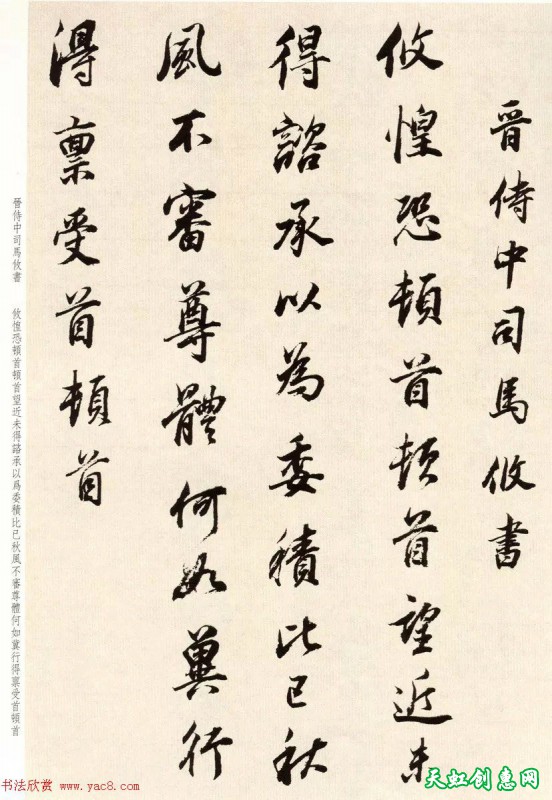 晉侍中司馬攸書
攸惶恐頓首頓首望近未
得諮承以為委積比已秋
風不審尊體何如冀行
得稟受首頓首
晉侍中司馬攸書 攸惶恐頓首頓首望近未得諮承以爲委積比已秋風不審尊體何如冀行得稟受首頓首
书法欣赏 www.yac8.com
天虹创意网